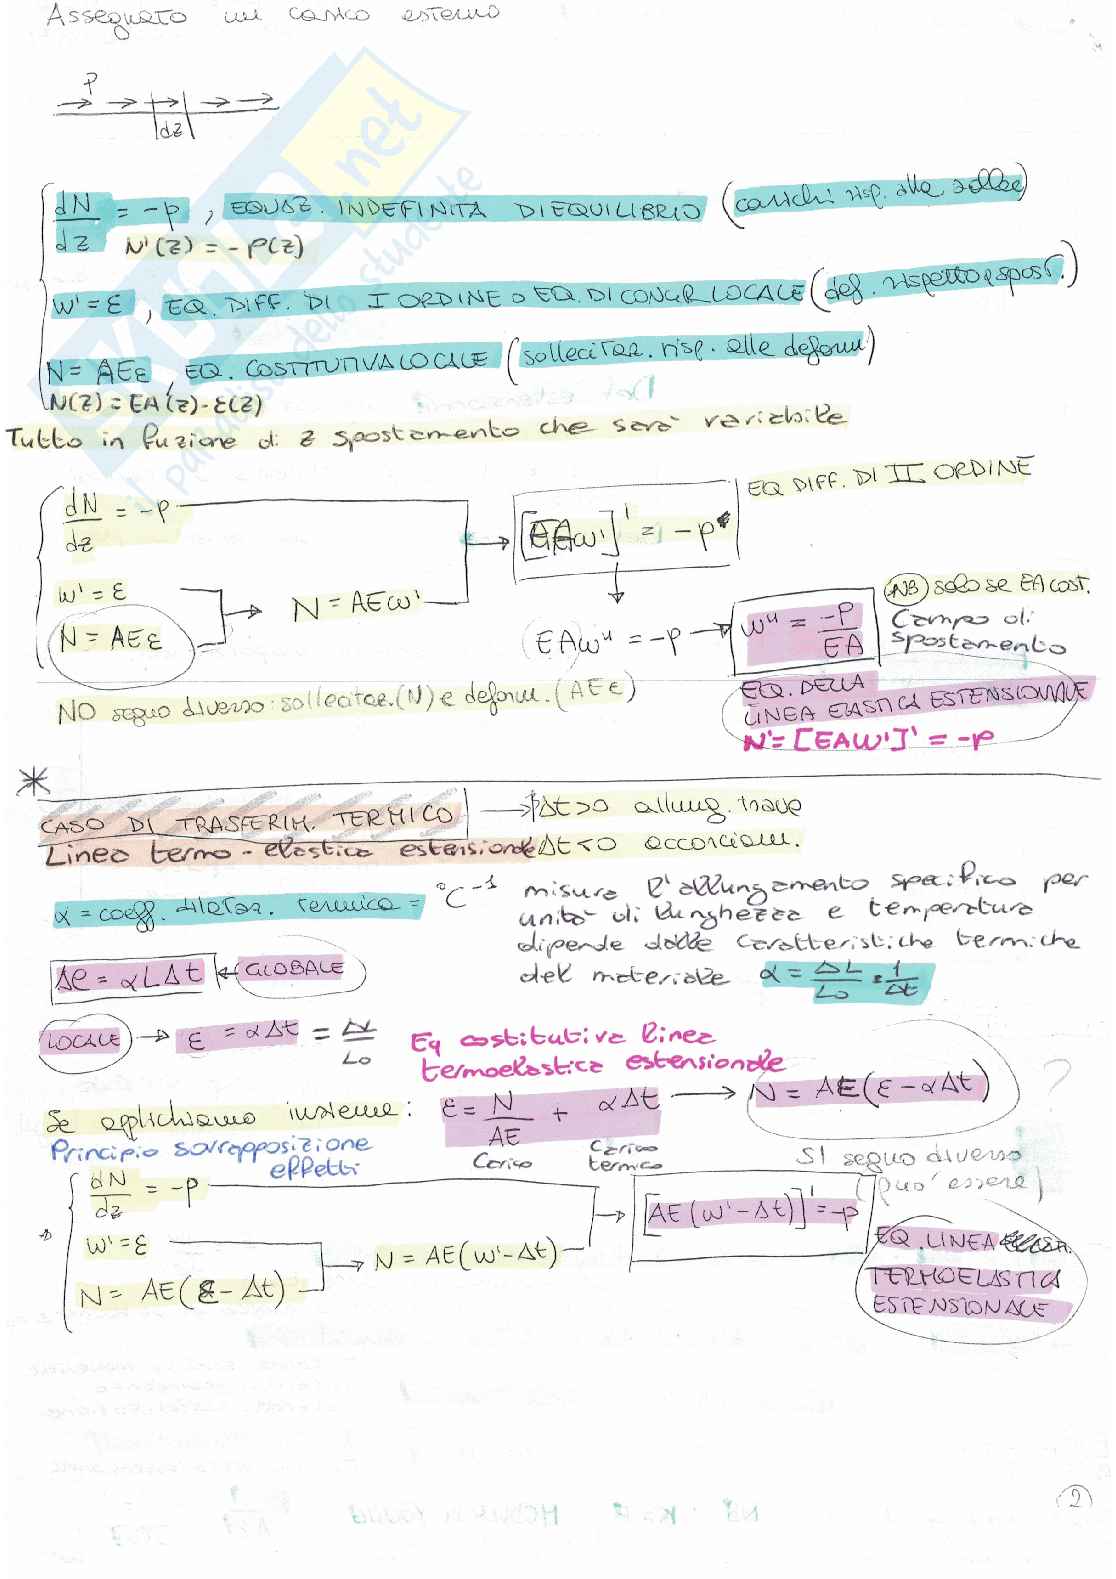 Assegnato un carico esterno
P
dz
dN/dz = -p , EQUAZ. INDEFINITA DI EQUILIBRIO (carichi risp. alle sollec)
N'(z) = - P(z)
w' = ε , EQ. DIFF. DI I ORDINE o EQ. DI CONGR LOCALE (def. rispetto spost.)
N = AEε , EQ. COSTITUTIVA LOCALE (sollecitaz. risp. alle deform)
N(z) = EA(z)·ε(z)
Tutto in fuzione di z spostamento che sarà variabile
dN/dz = -p
[EAw']' = -p
EQ DIFF. DI II ORDINE
w' = ε
N = AEε
N = AEw'
EAw" = -p
w" = -P/EA
NB solo se EA cost.
Campo di
spostamento
NO segno diverso: sollecitaz. (N) e deform. (AEε)
EQ. DELLA
LINEA ELASTICA ESTENSIONALE
N' = [EAW']' = -p
CASO DI TRASFERIM. TERMICO
Δt>0 allung. trave
Linea termo-elastica estensionale Δt<0 accorciam.
α = coeff. dilataz. termica = °C⁻¹
misura l'allungamento specifico per
unità di lunghezza e temperatura
dipende dalle caratteristiche termiche
del materiale α = ΔL/L₀ · 1/Δt
Δl = αLΔt ← GLOBALE
LOCALE → ε = αΔt = Δl/L₀
Eq costitutiva linea
termoelastica estensionale
Se applichiamo insieme: ε = N/AE + αΔt → N = AE(ε - αΔt)
Principio sovrapposizione
effetti
Carico
Carico
termico
SI segno diverso
(può essere)
dN/dz = -p
w' = ε
N = AE(ε - Δt)
N = AE(w' - Δt)
[AE(w' - Δt)]' = -p
EQ. LINEA
TERMOELASTICA
ESTENSIONALE
2